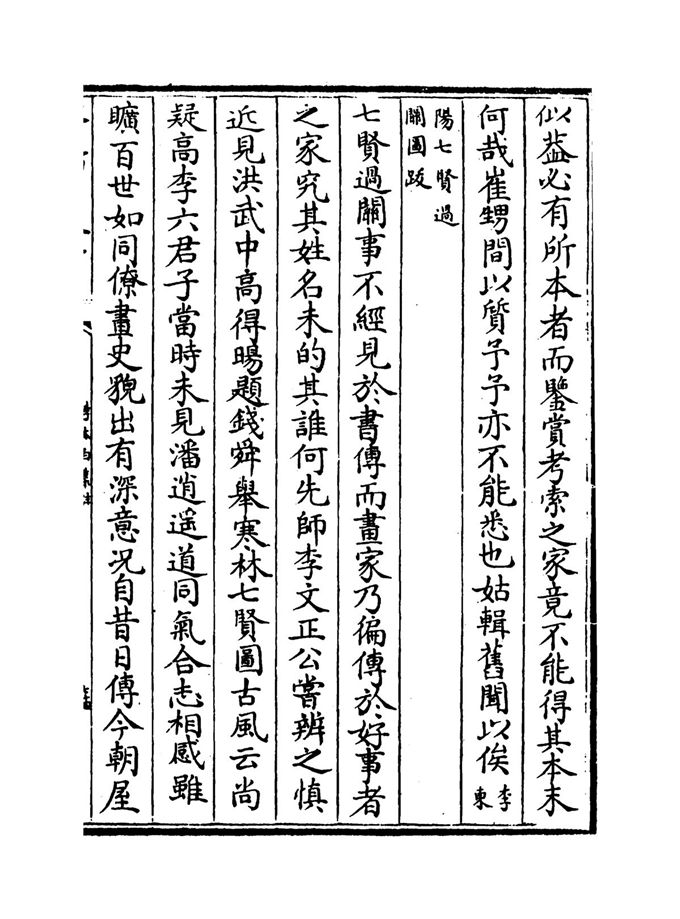 似葢必有所本者而鑒賞考索之家竟不能得其本末
何哉崔甥間以質予予亦不能悉也姑輯舊聞以俟李東
陽七賢過
關圖䟦
七賢過關事不經見於書傳而畫家乃徧傳於好事者
之家究其姓名未的其誰何先師李文正公嘗辨之慎
近見洪武中高得暘題錢舜舉寒林七賢圖古風云尚
疑高李六君子當時未見潘逍遥道同氣合志相感雖
曠百世如同僚畫史貌出有深意况自昔日傳今朝屋